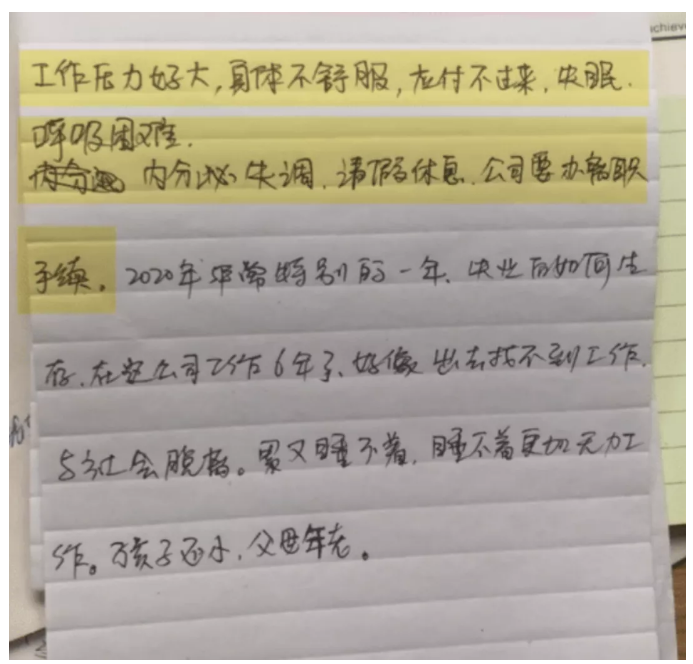 achiev
工作压力好大,身体不舒服,应付不过来,失眠.
呼吸困难.
内分泌 内分泌失调.请假休息.公司要办离职
手续。2020年非常特别的一年、失业后如何生
存.在这公司工作6年了、好像出去找不到工作.
与社会脱离。累又睡不着,睡不着更加无力工
作。孩子还小,父母年老。